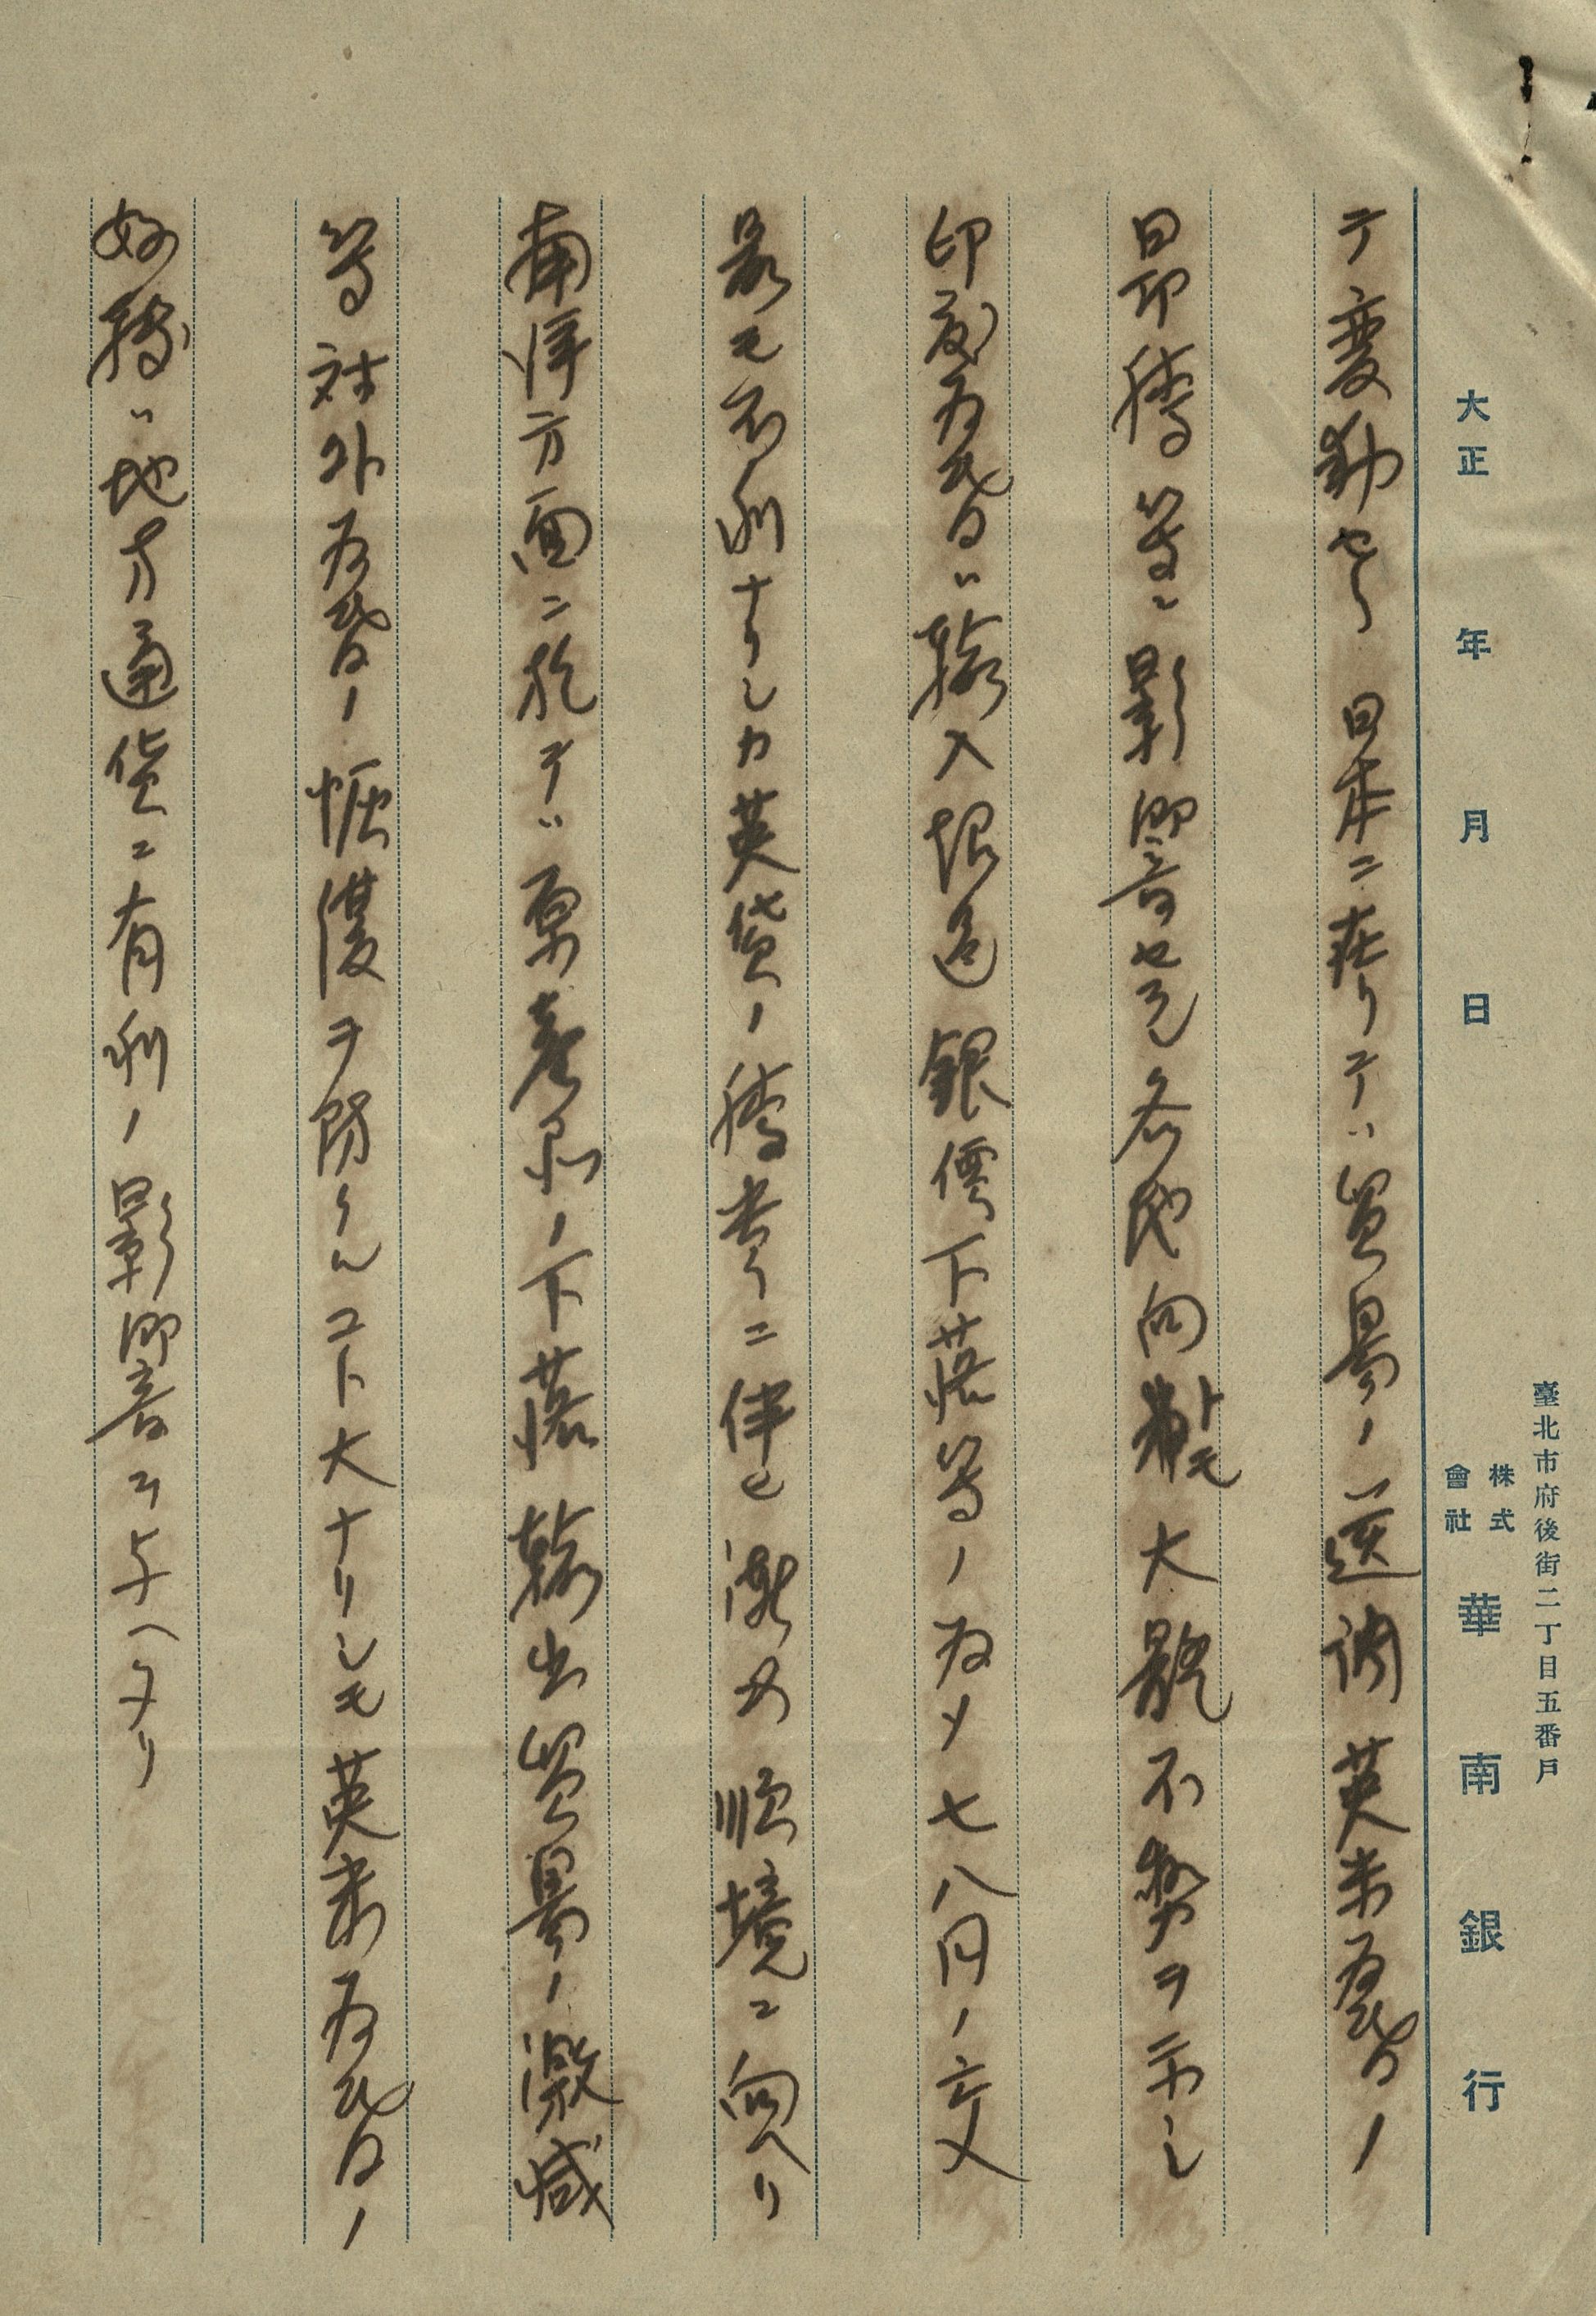 臺北市府後街二丁目五番戸
大正 年 月 日
株式會社 華南銀行
テ変動セリ日本ニ在リテハ貿易ノ逆調英米為替ノ
昂騰等ニ影響セラレ各地向共大体不勢ヲ示シ
印度為替ハ輸入旺盛銀價下落等ノ為メ七八円ノ交
最モ不利ナリシカ英貨ノ騰貴ニ伴ヒ漸ク順境ニ向ヘリ
南洋方面ニ於テハ原産品ノ下落輸出貿易ノ激減
等対外為替ノ恢復ヲ防ケルコト大ナリシモ英米為替ノ
好轉ハ地方通貨ニ有利ノ影響ヲ与ヘタリ